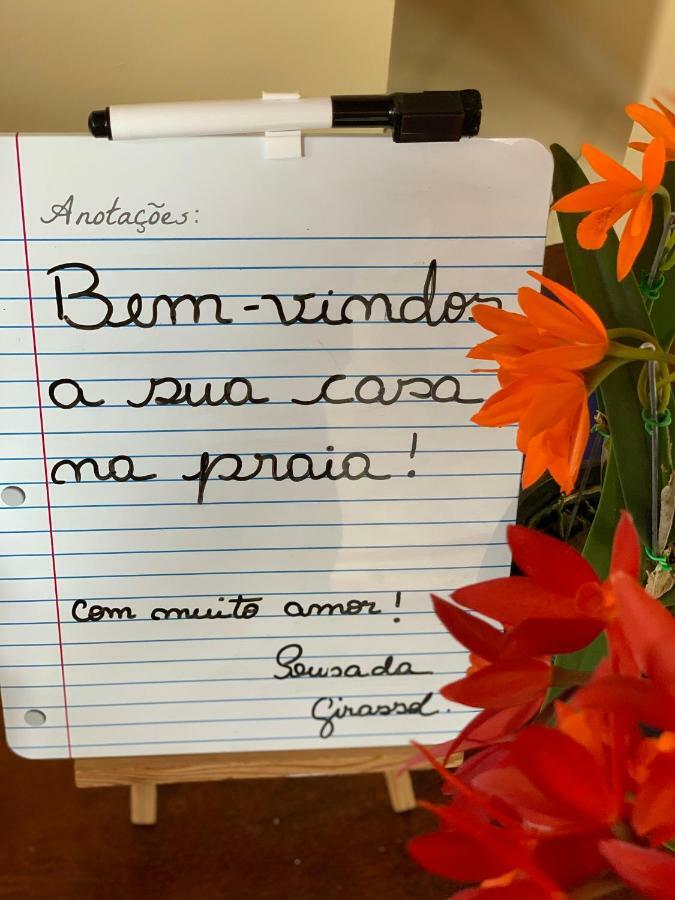 Anotações:
Bem-vindos
a sua casa
na praia!
com muito amor!
Pousada
Girassol.